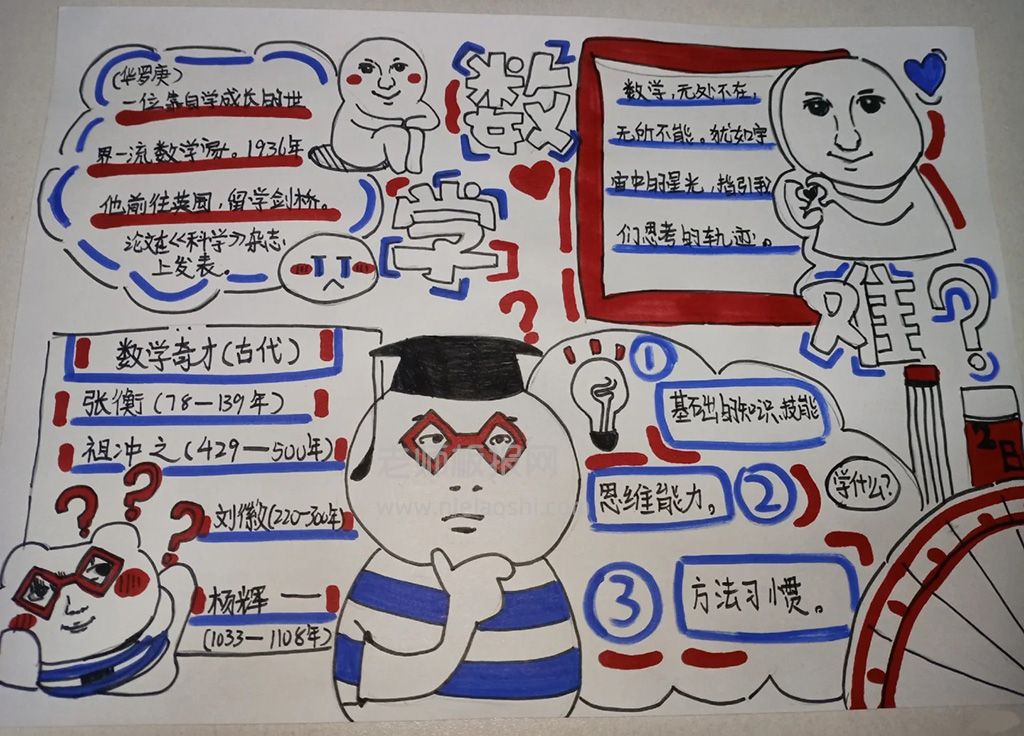 (华罗庚)
一位靠自学成长的世
界一流数学家。1936年
他前往英国,留学剑桥。
论文在《科学》杂志
上发表。
数
学
数学,无处不在,
无所不能。犹如宇
宙中的星光,指引我
们思考的轨迹。
难?
数学奇才(古代)
张衡(78—139年)
祖冲之(429—500年)
刘徽(220-300年)
杨辉—
(1033—1108年)
老师板报网
①
基础的知识、技能
思维能力。②
学什么?
③ 方法习惯。
2B